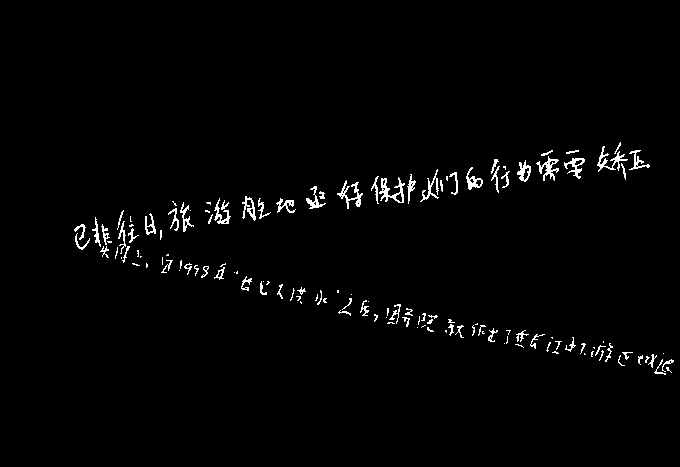 已非往日,旅游胜地亟待保护,人们的行为需要矫正
实际上,自1998年"世纪大洪水"之后,国务院就作出了在长江中下游退田还